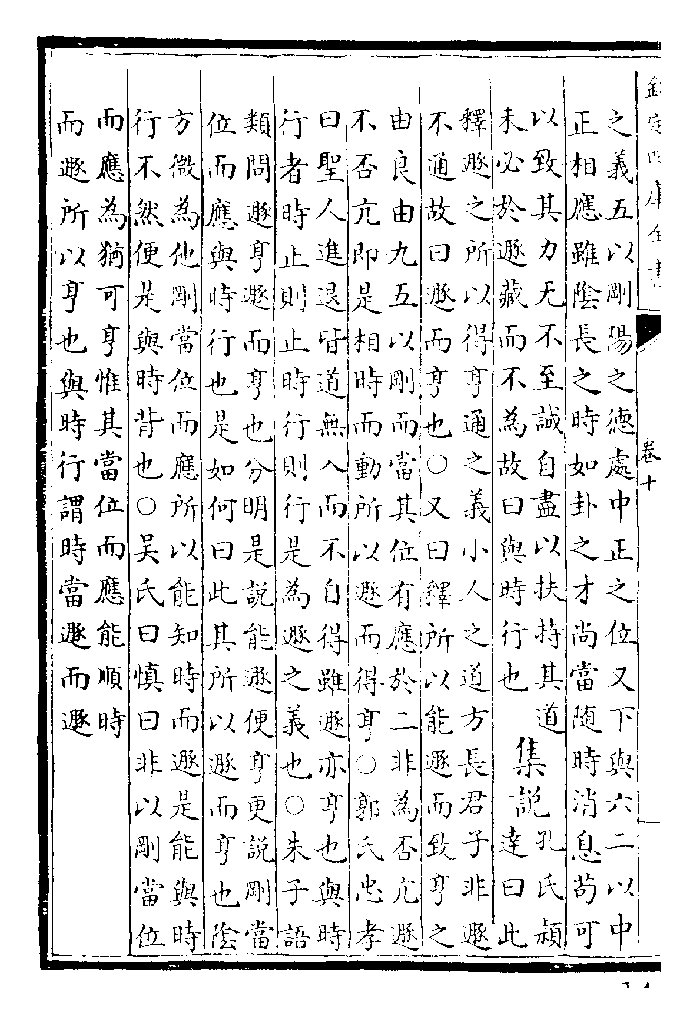 欽定四庫全書 卷十
之義五以剛陽之德處中正之位又下與六二以中
正相應雖陰長之時如卦之才尚當隨時消息苟可
以致其力无不至誠自盡以扶持其道
未必於遯藏而不為故曰與時行也
集説
孔氏頴
達曰此
釋遯之所以得亨通之義小人之道方長君子非遯
不通故曰遯而亨也○又曰釋所以能遯而致亨之
由良由九五以剛而當其位有應於二非為否亢遯
不否亢即是相時而動所以遯而得亨○郭氏忠孝
曰聖人進退皆道無入而不自得雖遯亦亨也與時
行者時止則止時行則行是為遯之義也○朱子語
類問遯亨遯而亨也分明是説能遯便亨更説剛當
位而應與時行也是如何曰此其所以遯而亨也陰
方微為他剛當位而應所以能知時而遯是能與時
行不然便是與時背也○吳氏曰慎曰非以剛當位
而應為猶可亨惟其當位而應能順時
而遯所以亨也與時行謂時當遯而遯